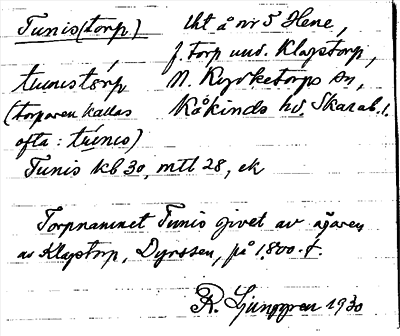 Tunis (torp) lht å nr 5 Hene,
f. torp und. Klapstorp,
tunistorp N. Kyrketorps sn,
(torparen kallas Kåkinds hd. Skarab. l.
ofta: tunis)
Tunis kb 30, mtl 28, ek
Torpnamnet Tunis givet av ägaren
av Klapstorp, Dyrssen, på 1800-t.
R. Ljunggren 1930